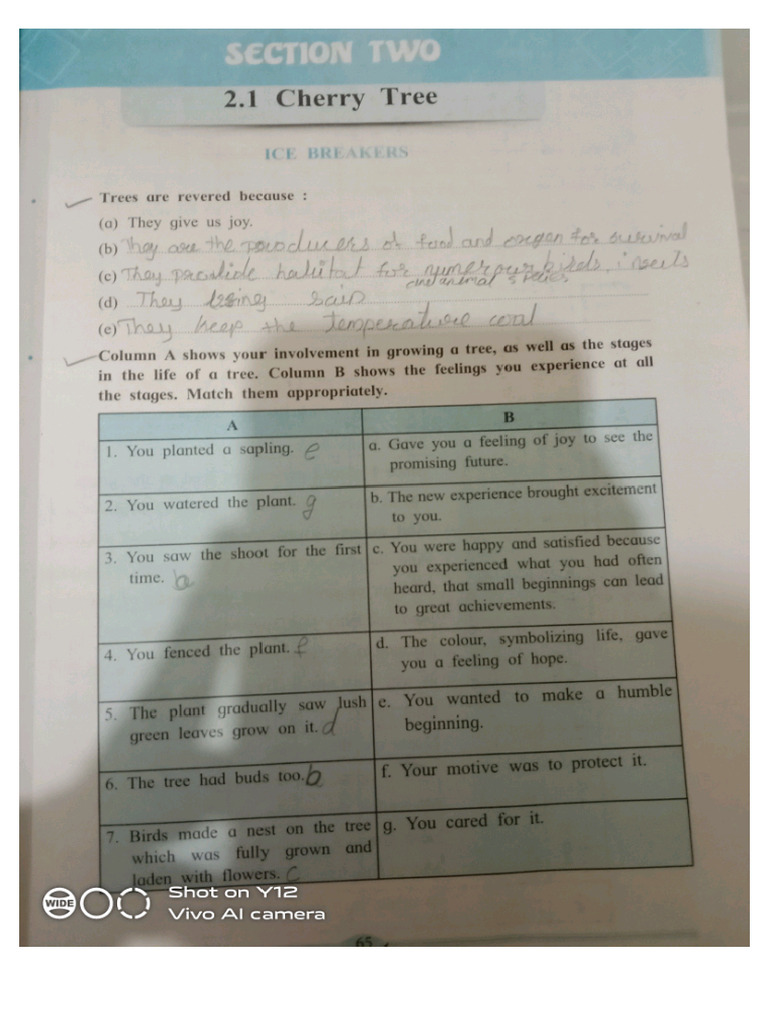 SECTION TWO
2.1 Cherry Tree
ICE BREAKERS
Trees are revered because :
(a) They give us joy.
(b) They are the producers of food and oxgen for survival
(c) They provide habitat for numerour birds, insects
and animal species
(d) They bring rain
(e) They keep the temperature cool
Column A shows your involvement in growing a tree, as well as the stages
in the life of a tree. Column B shows the feelings you experience at all
the stages. Match them appropriately.
A
B
1. You planted a sapling. e
a. Gave you a feeling of joy to see the
promising future.
2. You watered the plant. g
b. The new experience brought excitement
to you.
3. You saw the shoot for the first
time.
c. You were happy and satisfied because
you experienced what you had often
heard, that small beginnings can lead
to great achievements.
4. You fenced the plant. f
d. The colour, symbolizing life, gave
you a feeling of hope.
5. The plant gradually saw lush
green leaves grow on it. d
e. You wanted to make a humble
beginning.
6. The tree had buds too. b
f. Your motive was to protect it.
7. Birds made a nest on the tree
which was fully grown and
laden with flowers. C
g. You cared for it.
WIDE
Shot on Y12
Vivo AI camera
65